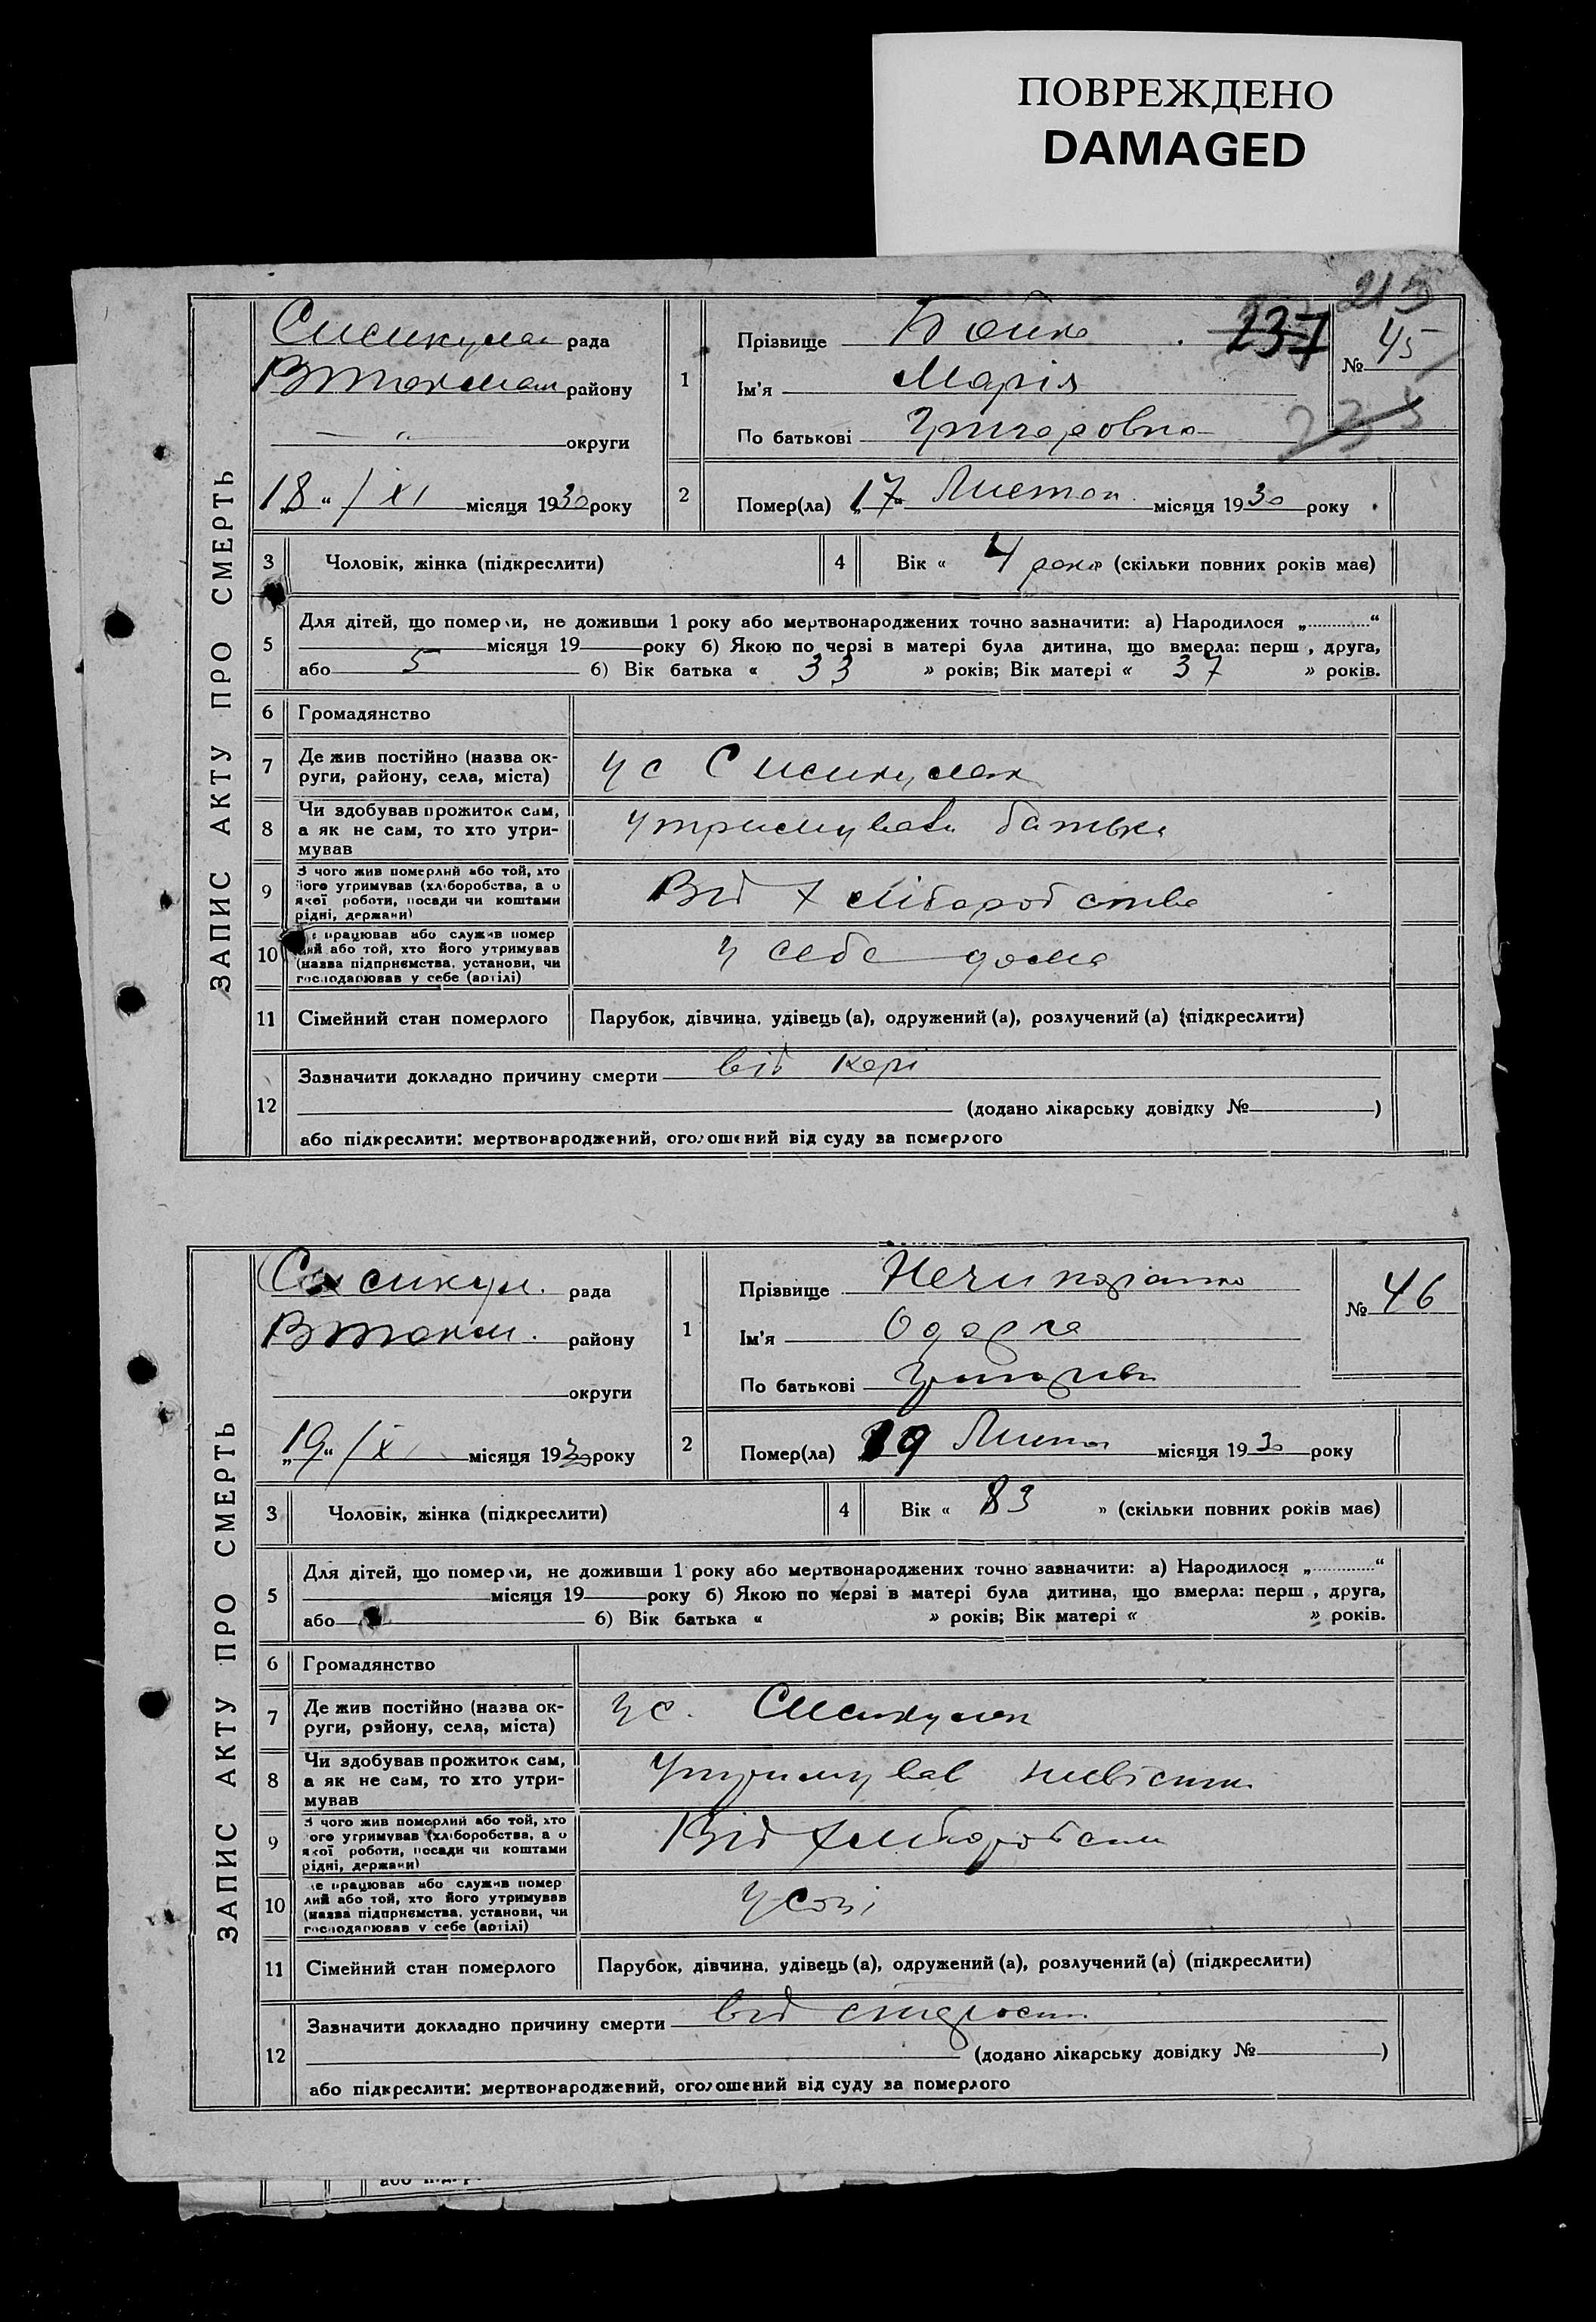 ПОВРЕЖДЕНО
DAMAGED
215
ЗАПИС АКТУ ПРО СМЕРТЬ
рада
району
округи
18 “ / XI місяця 1930 року
1
Прізвище Бойко 237
Ім'я Марія
По батькові Григоровна
№ 45
235
2
Помер(ла) „17“ Листоп. місяця 1930 року
3 Чоловік, жінка (підкреслити)
4 Вік « 4 роки » (скільки повних років має)
5
Для дітей, що померли, не доживши 1 року або мертвонароджених точно зазначити: а) Народилося „............“
місяця 19 року б) Якою по черзі в матері була дитина, що вмерла: перш , друга,
або 5 б) Вік батька « 33 » років; Вік матері « 37 » років.
6 Громадянство
7
Де жив постійно (назва ок-
руги, району, села, міста)
у с
8
Чи здобував прожиток сам,
а як не сам, то хто утри-
мував
утримував батько
9
З чого жив померлий або той, хто
його утримував (хліборобства, а о
якої роботи, посади чи коштами
рідні, держави)
Від хліборобства
10
е працював або служив помер
лий або той, хто його утримував
(назва підприємства, установи, чи
господарював у себе (артілі)
у себе дома
11 Сімейний стан померлого
Парубок, дівчина, удівець (а), одружений (а), розлучений (а) (підкреслити)
12
Зазначити докладно причину смерти від корі
(додано лікарську довідку № )
або підкреслити: мертвонароджений, оголошений від суду за померлого
ЗАПИС АКТУ ПРО СМЕРТЬ
рада
В Токм. району
округи
„19“ / XI місяця 1930 року
1
Прізвище Нечипоренко
Ім'я Одарка
По батькові
№ 46
2
Помер(ла) 19 Листоп місяця 1930 року
3 Чоловік, жінка (підкреслити)
4 Вік « 83 » (скільки повних років має)
5
Для дітей, що померли, не доживши 1 року або мертвонароджених точно зазначити: а) Народилося „............“
місяця 19 року б) Якою по черзі в матері була дитина, що вмерла: перш , друга,
або б) Вік батька « » років; Вік матері « » років.
6 Громадянство
7
Де жив постійно (назва ок-
руги, району, села, міста)
у с.
8
Чи здобував прожиток сам,
а як не сам, то хто утри-
мував
Утримував
9
З чого жив померлий або той, хто
ого утримував (хліборобства, а о
якої роботи, посади чи коштами
рідні, держави)
Від хліборобства
10
е працював або служив помер
лий або той, хто його утримував
(назва підприємства, установи, чи
господарював у себе (артілі)
11 Сімейний стан померлого
Парубок, дівчина, удівець (а), одружений (а), розлучений (а) (підкреслити)
12
Зазначити докладно причину смерти від старости
(додано лікарську довідку № )
або підкреслити: мертвонароджений, оголошений від суду за померлого